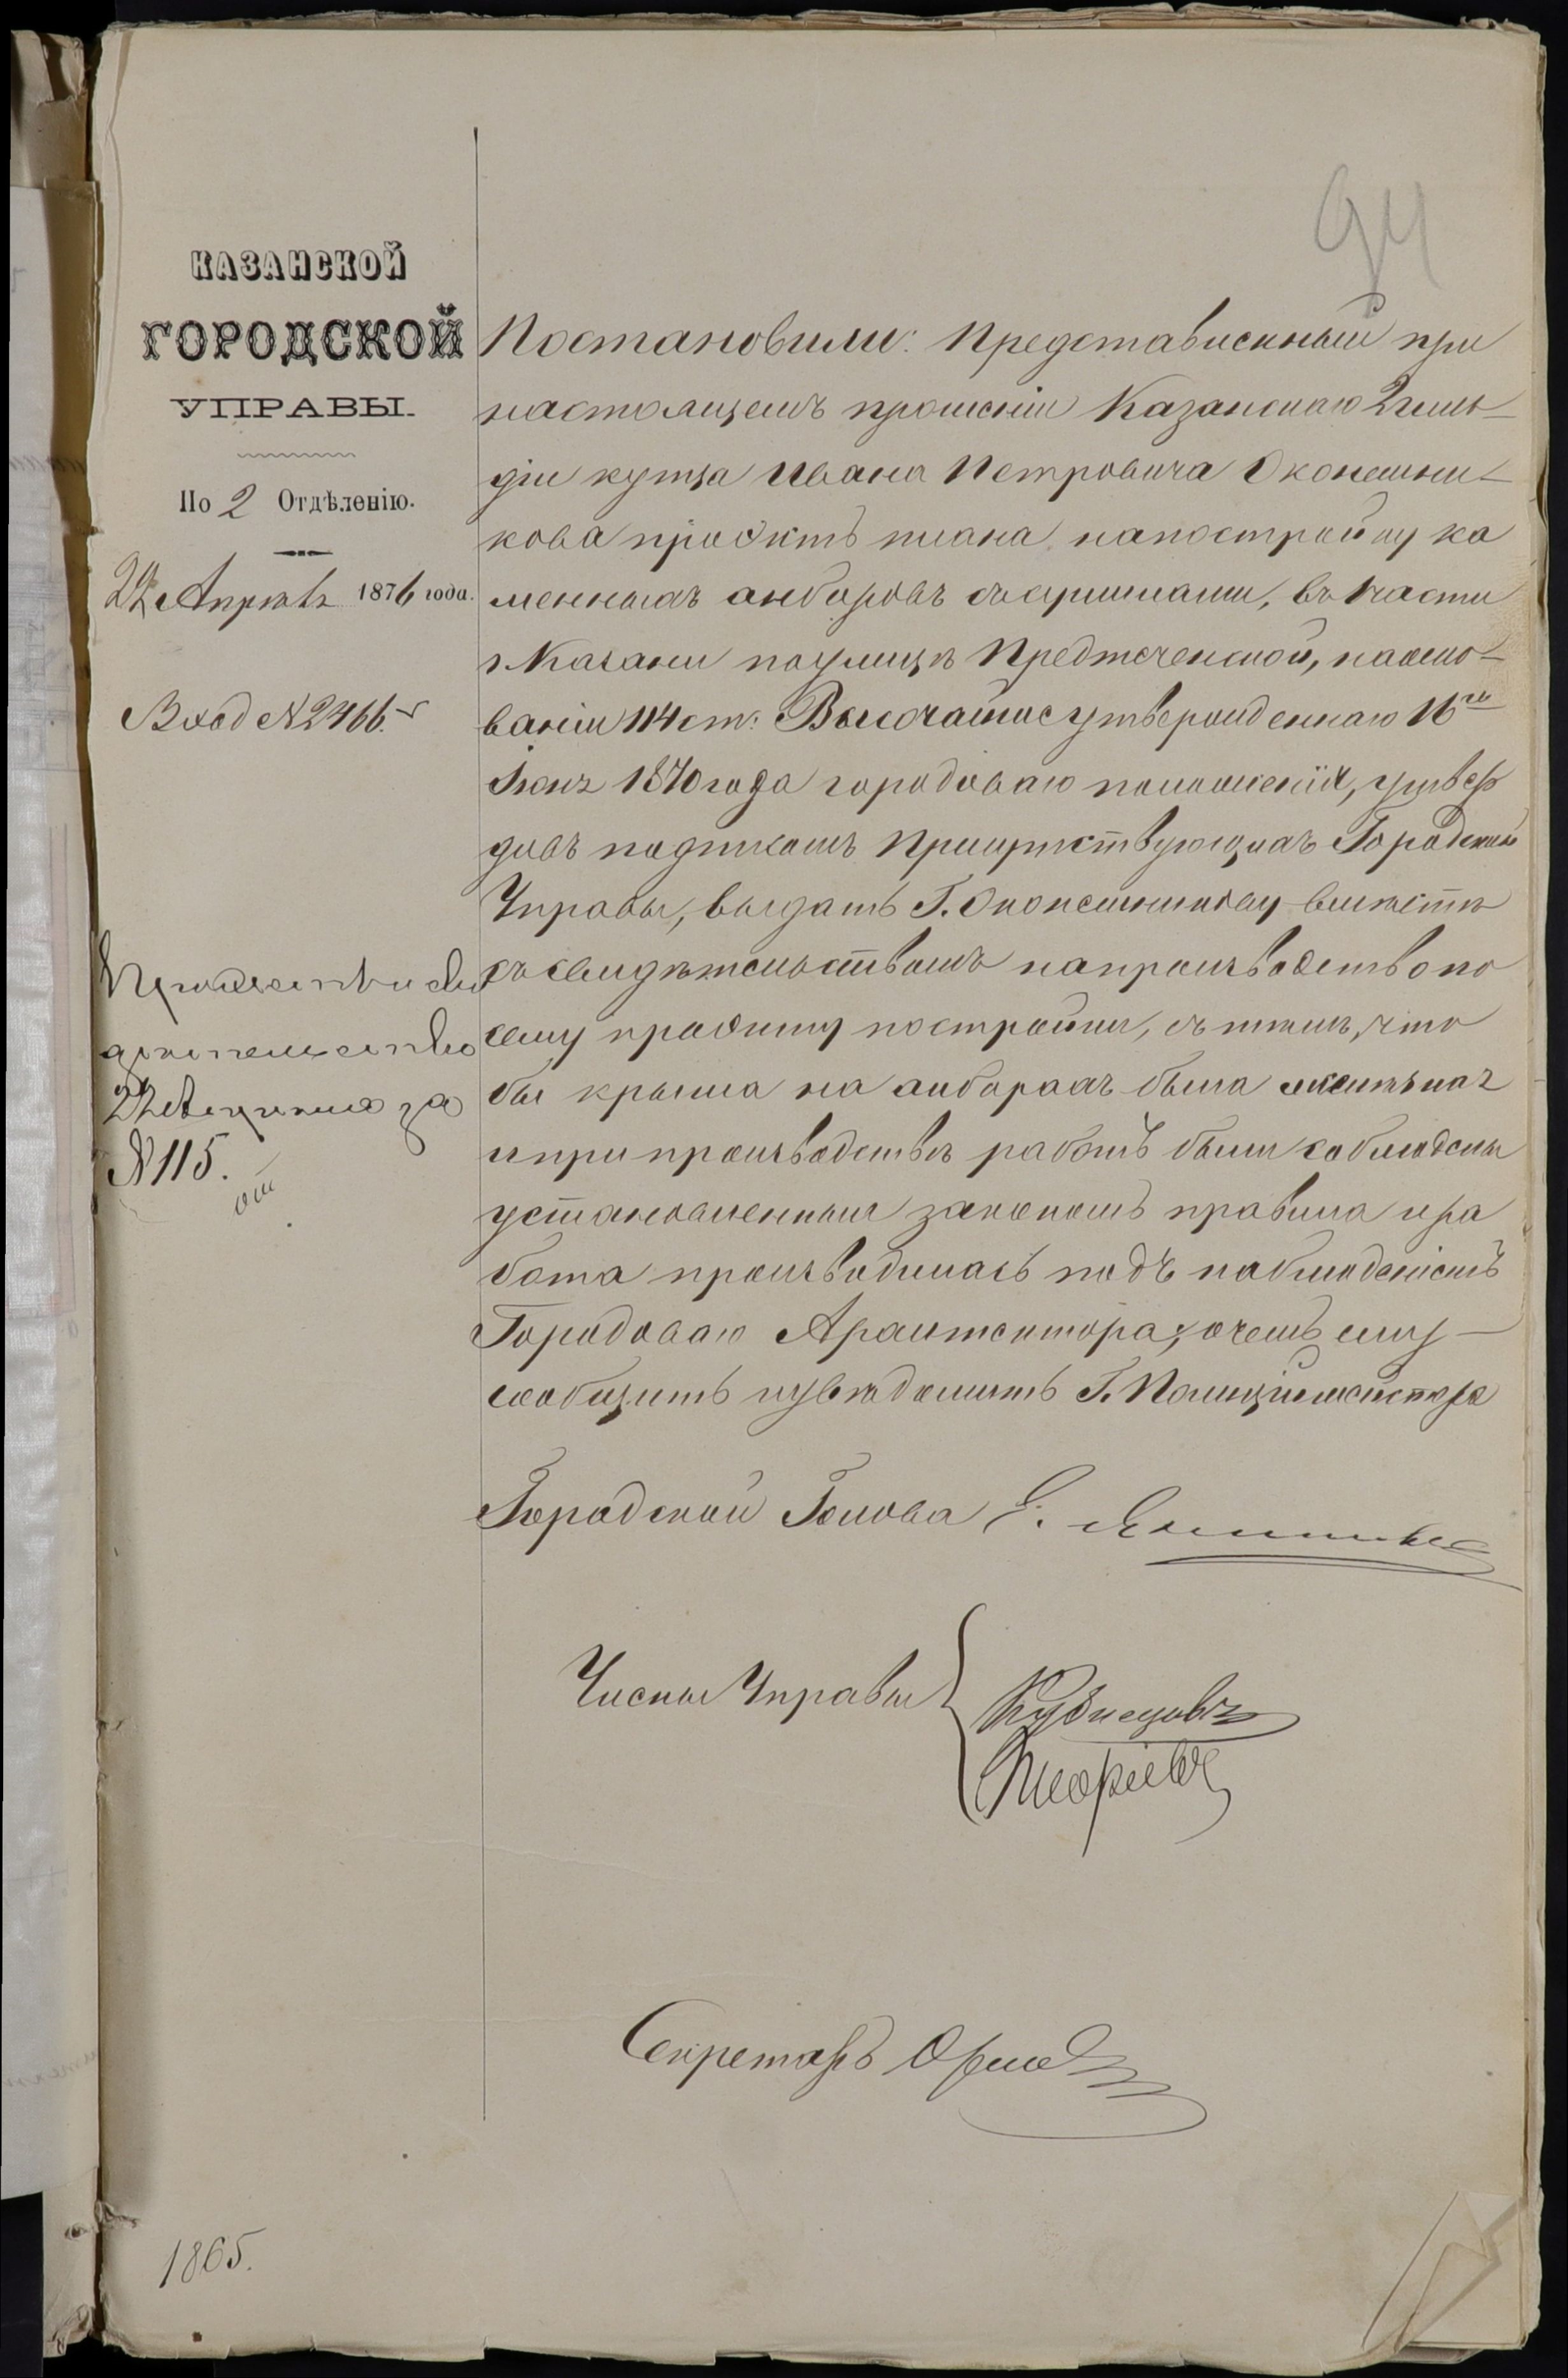 94
КАЗАНСКОЙ
ГОРОДСКОЙ
УПРАВЫ.
По 2 Отдѣленію.
22 Апрѣля 1876 года.
Вход № 2466.
Постановили: Представленный при
настоящемъ прошеніи Казанскаго 2 гиль-
діи купца Ивана Петровича Оконешни-
кова проэктъ плана на постройку ка
менныхъ анбаровъ съ крыльцами, въ 1 части
г. Казани по улицѣ Предтеченской, на осно-
ваніи 114 ст: Высочайше утвержденнаго 16го
Іюня 1870 года городоваго положенія, утвер
дивъ подписомъ Присутствующихъ Городской
Управы, выдать Г. Оконешникову вмѣстѣ
съ свидѣтельствомъ на производство по
сему проэкту постройки, съ тѣмъ, что
бы крыша на анбарахъ была желѣзная
и при производствѣ работъ были соблюдены
установленныя закономъ правила и ра
бота производилась подъ наблюденіемъ
Городоваго Архитектора, о чемъ ему
сообщить и увѣдомить Г. Полиціймейстера
22 за
№ 115.
Городской Голова Е.
Члены Управы
Кузнецовъ
Секретарь
1865.